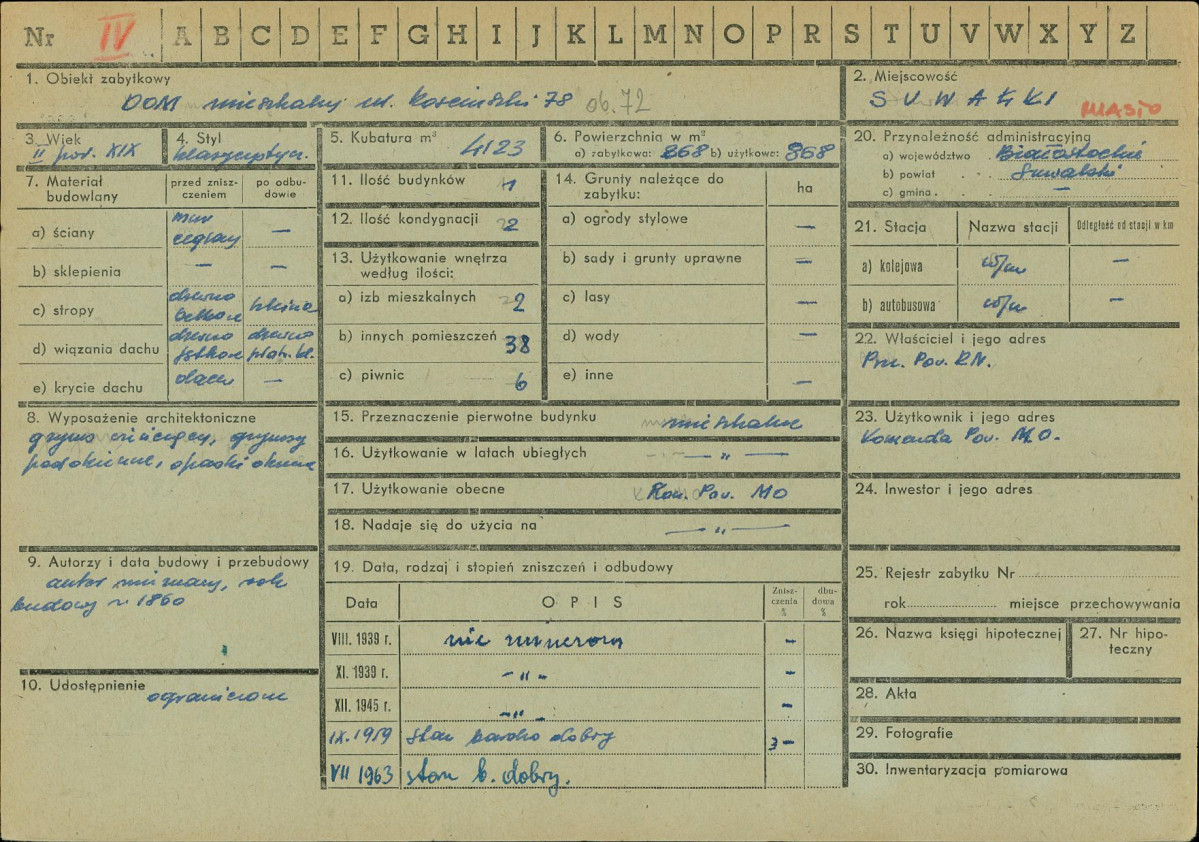 Nr IV A B C D E F G H I J K L M N O P R S T U V W X Y Z
1. Obiekt zabytkowy
DOM mieszkalny ul. Kościuszki 78 06.72
2. Miejscowość
SUWAŁKI MIASTO
3. Wiek
II poł. XIX
4. Styl
klasycystycz.
5. Kubatura m³ 4123
6. Powierzchnia w m²
a) zabytkowa: 868 b) użytkowa: 868
7. Materiał budowlany
przed zniszczeniem
po odbudowie
a) ściany mur cegłany —
b) sklepienia — —
c) stropy drewno belkowe
d) wiązania dachu drewno drewno
e) krycie dachu —
8. Wyposażenie architektoniczne
gzyms wieńczący, gzymsy
podokienne, opaski okienne
9. Autorzy i data budowy i przebudowy
autor nieznany, rok
budowy 1860
10. Udostępnienie
ograniczone
11. Ilość budynków 1
12. Ilość kondygnacji 2
13. Użytkowanie wnętrza
według ilości:
a) izb mieszkalnych 2
b) innych pomieszczeń 38
c) piwnic 6
14. Grunty należące do
zabytku: ha
a) ogrody stylowe —
b) sady i grunty uprawne —
c) lasy —
d) wody —
e) inne —
15. Przeznaczenie pierwotne budynku mieszkalne
16. Użytkowanie w latach ubiegłych — „ —
17. Użytkowanie obecne Kom. Pow. MO
18. Nadaje się do użycia na — „ —
19. Data, rodzaj i stopień zniszczeń i odbudowy
Data OPIS Zniszczenia % dbudowa %
VIII. 1939 r. nie —
XI. 1939 r. - „ - —
XII. 1945 r. - „ - —
IX. 1959 Stan bardzo dobry —
VII 1963 stan b. dobry.
20. Przynależność administracyjna
a) województwo Białostockie
b) powiat Suwalski
c) gmina —
21. Stacja Nazwa stacji Odległość od stacji w km
a) kolejowa w/m —
b) autobusowa w/m —
22. Właściciel i jego adres
Prez. Pow. R.N.
23. Użytkownik i jego adres
Komenda Pow. M.O.
24. Inwestor i jego adres
25. Rejestr zabytku Nr
rok miejsce przechowywania
26. Nazwa księgi hipotecznej
27. Nr hipoteczny
28. Akta
29. Fotografie
30. Inwentaryzacja pomiarowa